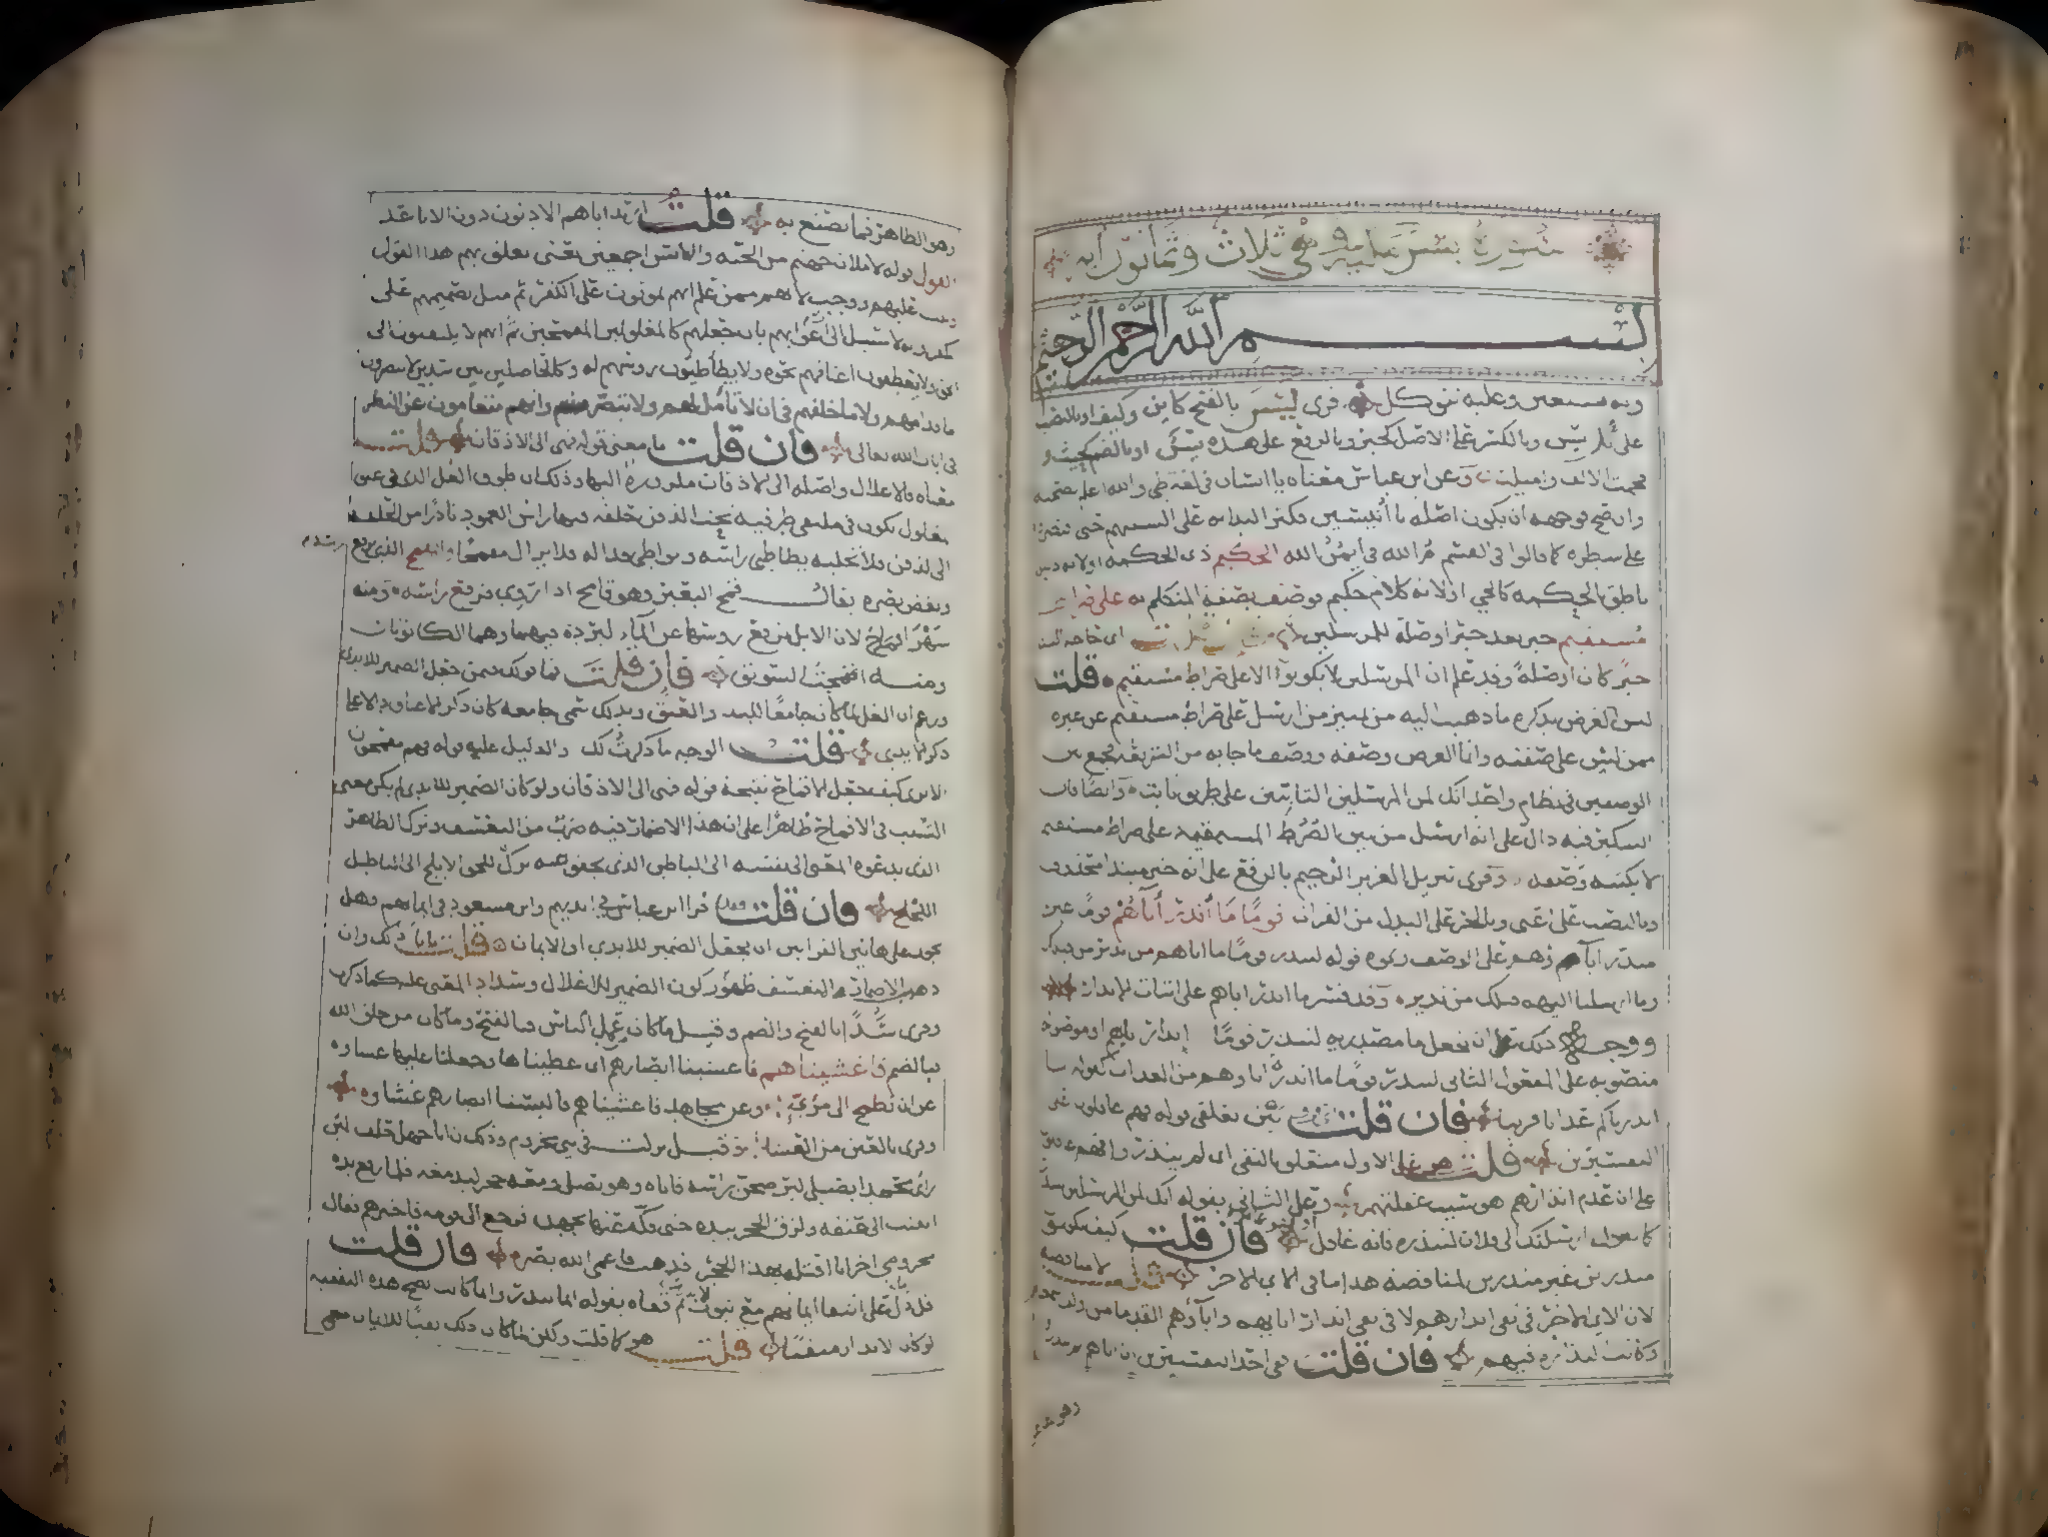 سورة يس مكية وهي ثلاث وثمانون آية
بسم الله الرحمن الرحيم
وبه نستعين وعليه نتوكل قرى يس بالفتح كاين وكيف او بالنصب
على اتل يس وبالكسر على الاصل كجير وبالرفع على هذه يس او بالضم كحيث و
فخمت الالف واميلت وعن ابن عباس معناه يا انسان في لغة طي والله اعلم بصحته
وان صح فوجهه ان يكون اصله يا انيسين فكثر الندا به على السنتهم حتى اقتصروا
على شطره كما قالوا في القسم م الله في ايمن الله الحكيم ذي الحكمه او لانه دليل
ناطق بالحكمه كالحي او لانه كلام حكيم فوصف بصفة المتكلم به على صراط
مستقيم خبر بعد خبر او صلة للمرسلين اي حاجة اليه
خبرا كان او صلة وقد علم ان المرسلين لا يكونوا الا على صراط مستقيم قلت
ليس الغرض بذكره ما ذهبت اليه من تمييز من ارسل على صراط مستقيم عن غيره
ممن ليس على صفته وانما الغرض وصفه ووصف ما جا به من الشريعة فجمع بين
الوصفين في نظام واحد انك لمن المرسلين الثابتين على طريق ثابت وايضا فان
التنكير فيه دال على انه ارسل من بين الصرط المستقيمة على صراط مستقيم
لا يكتنه وصفه وقرى تنزيل العزيز الرحيم بالرفع على انه خبر مبتدا محذوف
وبالنصب على اعني وبالجر على البدل من القران قوما ما انذر اباؤهم قوما غير
منذر اباؤهم على الوصف ونحوه قوله لتنذر قوما ما اتاهم من نذير من قبلك
وما ارسلنا اليهم قبلك من نذير وقد فسر ما انذر اباؤهم على اثبات الانذار
ووجه ذلك ان تجعل ما مصدريه لتنذر قوما انذار ابايهم او موصوله
منصوبه على المفعول الثاني لتنذر قوما ما انذره اباؤهم من العذاب كقوله انا
انذرناكم عذابا قريبا فان قلت اي فرق بين تعلقي قوله فهم غافلون على
التفسيرين قلت هو على الاول متعلق بالنفي اي لم ينذروا فهم غافلون
على ان عدم انذارهم هو سبب غفلتهم وعلى الثاني بقوله انك لمن المرسلين لتنذر
كما تقول ارسلتك الى فلان لتنذره فانه غافل فان قلت كيف يكونون
منذرين غير منذرين لمناقضة هذا ما في الاي الاخر قلت لا مناقضه
لان الاي الاخر في نفي انذارهم لا في نفي انذار ابايهم واباؤهم القدما من ولد اسمعيل
وكانت النذارة فيهم فان قلت ففي احد التفسيرين ان اباهم لم ينذروا
وهو الظاهر فما تصنع به قلت اريد اباهم الادنون دون الاباعد
القول قوله لاملان جهنم من الجنه والناس اجمعين يعني تعلق بهم هذا القول
وثبت عليهم ووجب لانهم ممن علم انهم يموتون على الكفر ثم مثل تصميمهم على
كفرهم وانه لا سبيل الى ارعوائهم بان جعلهم كالمغلولين المقمحين في انهم لا يلتفتون الى
الحق ولا يعطفون اعناقهم نحوه ولا يطاطئون رؤسهم له وكالحاصلين بين سدين لا يبصرون
ما قدامهم ولا ما خلفهم في ان لا تامل لهم ولا تبصر وانهم متعامون عن النظر
في ايات الله تعالى فان قلت ما معنى قوله فهي الى الاذقان قلت
معناه فالاغلال واصلة الى الاذقان ملزوزة اليها وذلك ان طوق الغل الذي في عنق
المغلول يكون في ملتقى طرفيه تحت الذقن حلقه فيها راس العمود نادرا من الحلقة
الى الذقن فلا تخليه يطاطي راسه ويوطي قذاله فلا يزال مقمحا والمقمح الذي يرفع راسه
ويغض بصره يقال قمح البعير وهو قامح اذا روى فرفع راسه ومنه
شهرا قماح لان الابل ترفع رؤسها عن الماء لبرده فيهما وهما الكانونان
ومنه اقتمحت السويق فان قلت فما قولك فيمن جعل الضمير للايدي
وزعم ان الغل لما كان جامعا لليد والعنق وبذلك سمي جامعه كان ذكر الاعناق دالا على
ذكر الايدي قلت الوجه ما ذكرت لك والدليل عليه قوله فهم مقمحون
الا ترى كيف جعل الاقماح نتيجة قوله فهي الى الاذقان ولو كان الضمير للايدي لم يكن معنى
التسبب في الاقماح ظاهرا على ان هذا الاضمار فيه ضرب من التعسف وترك الظاهر
الذي يدعوه المعنى الى نفسه الى الباطن الذي يجفو عنه ترك للحق الابلج الى الباطل
اللجلج فان قلت فقد قرا ابن عباس في ايديهم وابن مسعود في ايمانهم فهل
تجوز على هاتين القرايتين ان يجعل الضمير للايدي او الايمان قلت يابى ذلك وان
ذهب الاضمار المتعسف ظهور كون الضمير للاغلال وسداد المعنى عليه كما ذكرت
وقرى سدا بالفتح والضم وقيل ما كان من عمل الناس فبالفتح وما كان من خلق الله
فبالضم فاغشيناهم فاغشينا ابصارهم اي غطيناها وجعلنا عليها غشاوه
عن ان تطمح الى مرئي وعن مجاهد فاغشيناهم فالبسنا ابصارهم غشاوه
وقرى بالعين من العشا وقيل نزلت في بني مخزوم وذلك ان ابا جهل حلف لئن
راى محمدا يصلي ليرضخن راسه فاتاه وهو يصلي ومعه حجر ليدمغه فلما رفع يده
انثنت الى عنقه ولزق الحجر بيده حتى فكوه عنها بجهد فرجع الى قومه فاخبرهم فقال
مخزومي اخر انا اقتله بهذا الحجر فذهب فاعمى الله بصره فان قلت
قد دل على انتفاء ايمانهم مع ثبوت الانذار ثم قفاه بقوله انما تنذر وانما كانت تصح هذه التقفيه
لو كان الانذار منفيا قلت هو كما قلت ولكن لما كان ذلك نفيا للايمان مع